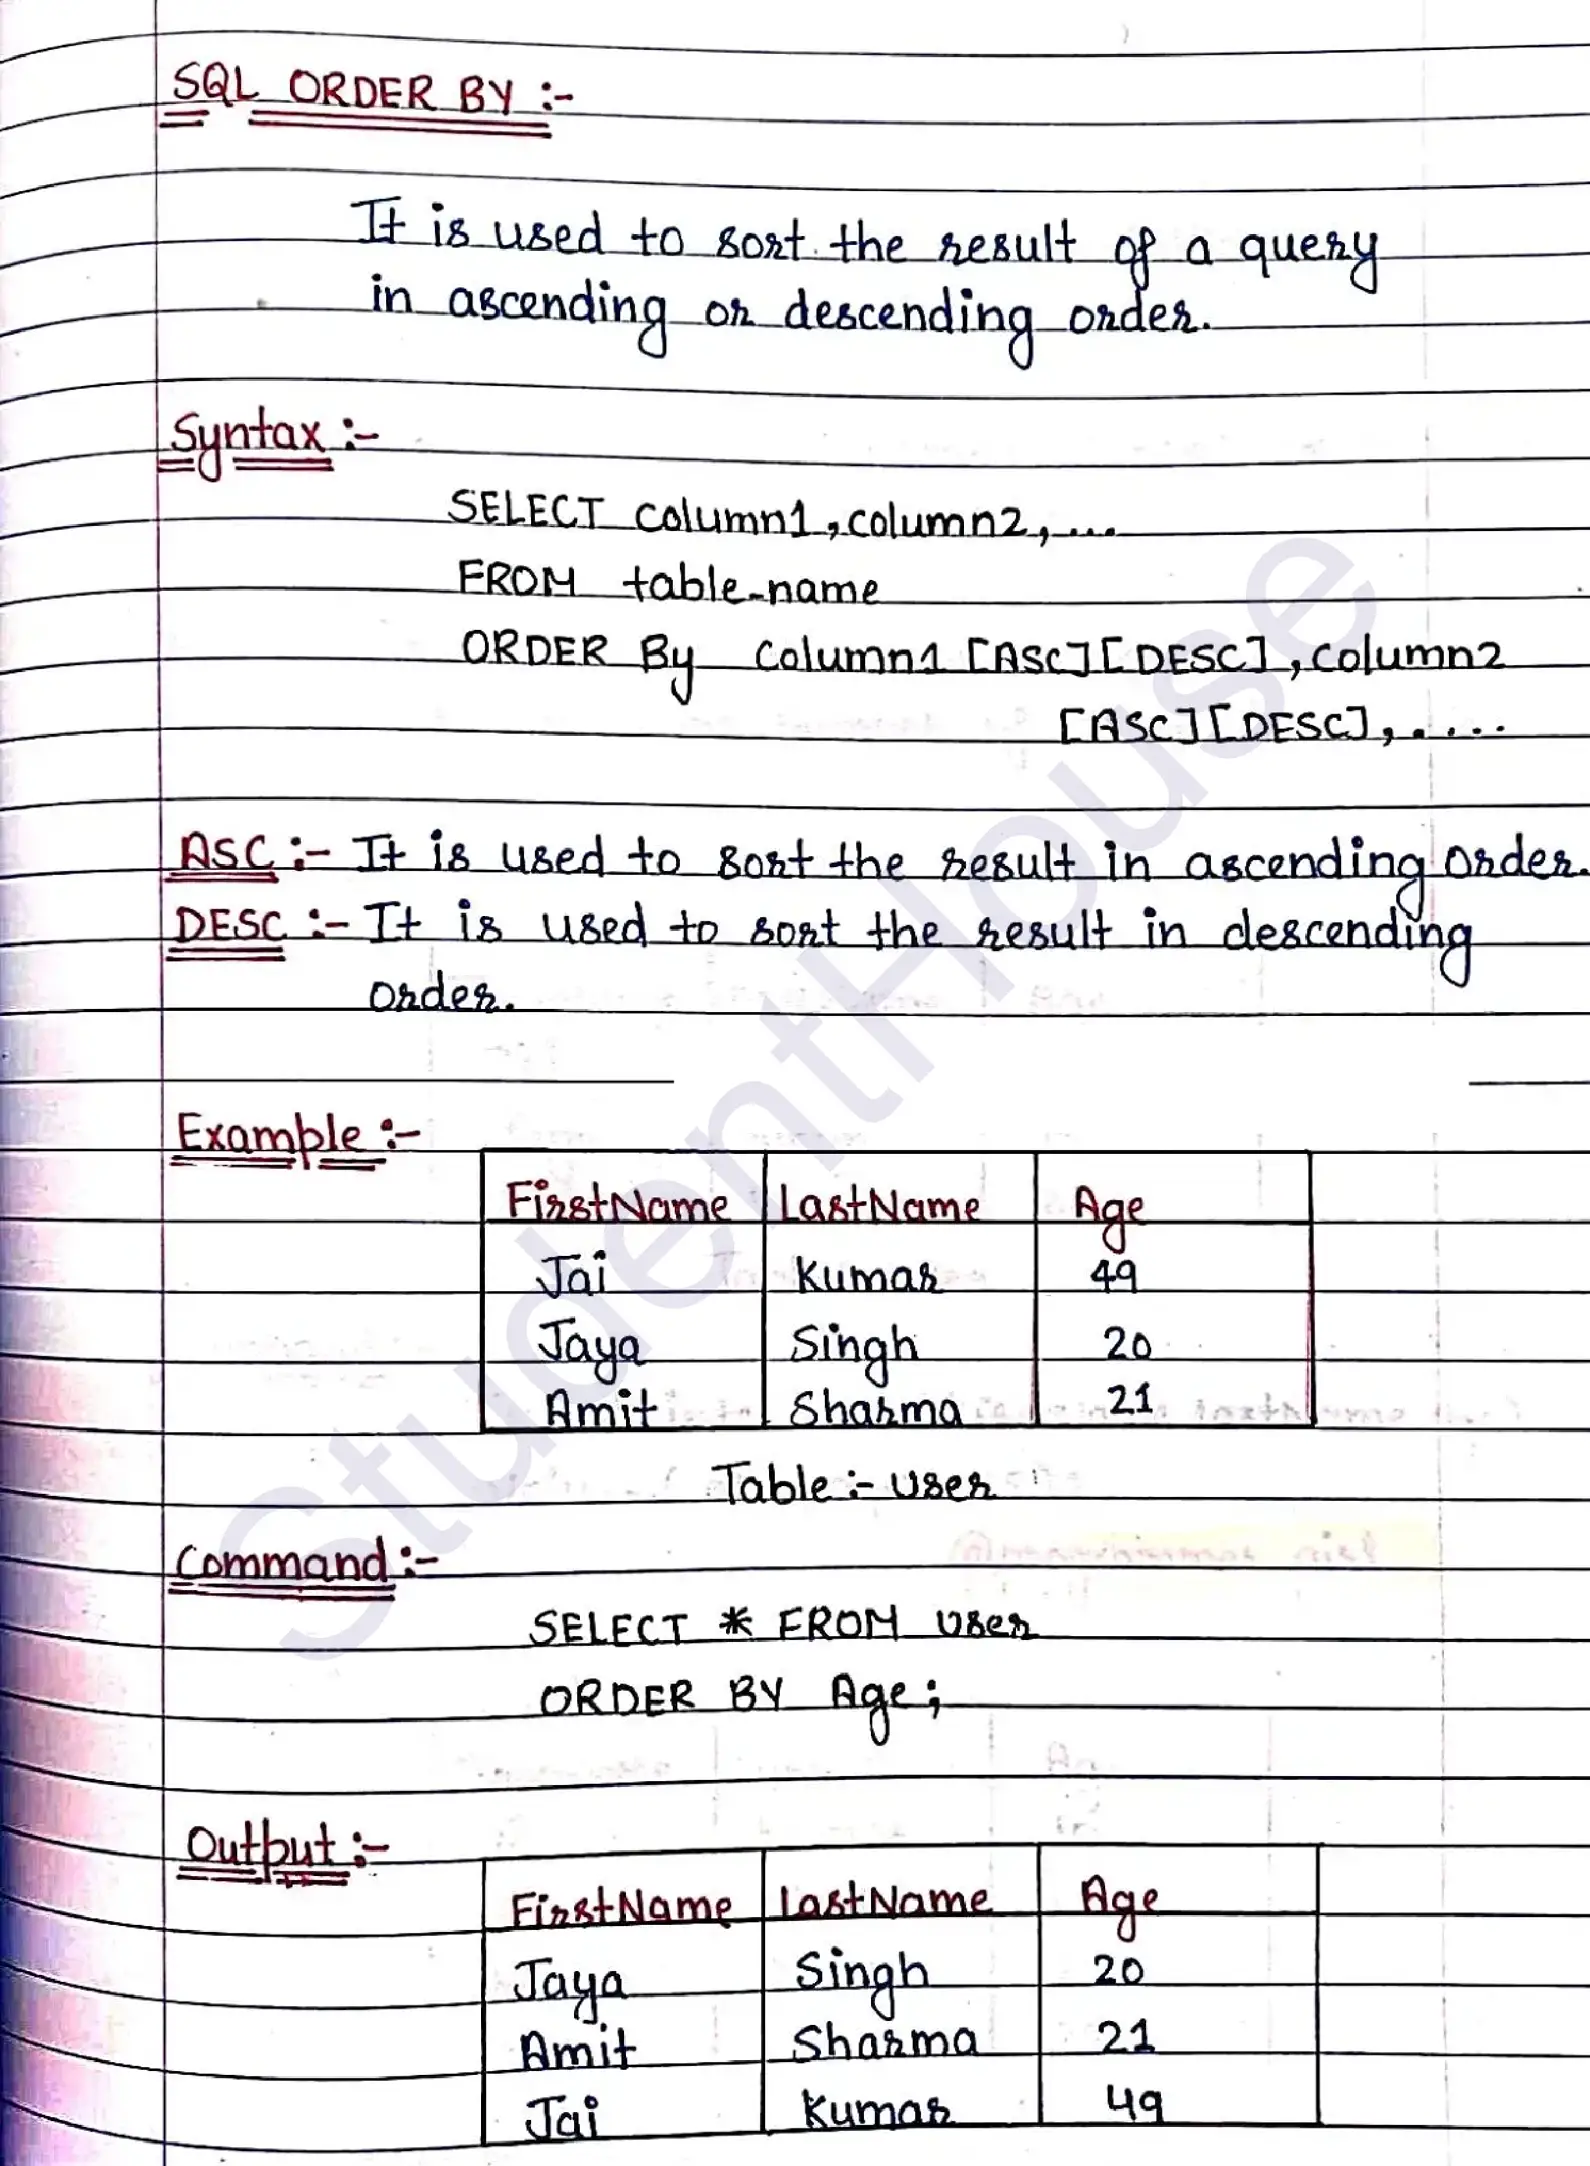 SQL ORDER BY :-
It is used to sort the result of a query
in ascending or descending order.
Syntax :-
SELECT column1, column2, ...
FROM table_name
ORDER By Column1 [ASC][DESC], column2
[ASC][DESC], .....
ASC :- It is used to sort the result in ascending order.
DESC :- It is used to sort the result in descending
order.
Example :-
FirstName LastName Age
Jai Kumar 49
Jaya Singh 20
Amit Sharma 21
Table :- user
Command :-
SELECT * FROM User
ORDER BY Age;
Output :-
FirstName LastName Age
Jaya Singh 20
Amit Sharma 21
Jai Kumar 49
StudentHouse